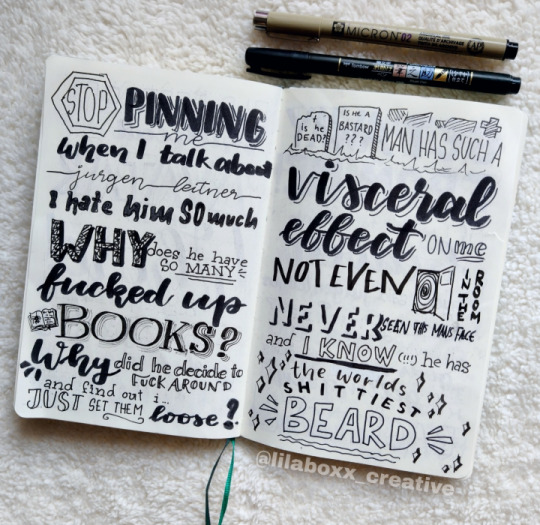 MICRON 02
STOP PINNING
me
when I talk about
jurgen leitner
I hate him SO much
WHY does he have
SO MANY
fucked up
BOOKS?
Why did he decide to
FUCK AROUND
and find out i...
JUST SET THEM loose?
t
is he
DEAD?
IS HE A
BASTARD
???
MAN HAS SUCH A
visceral
effect ON me
NOT EVEN IN THE ROOM
NEVER SEEN THIS MAN'S FACE
and I KNOW (!!!) he has
the worlds
SHITTIEST
BEARD
@lilaboxx_creative